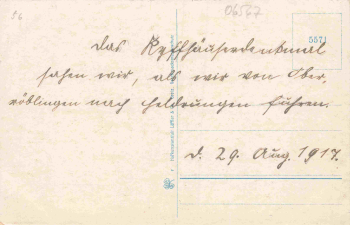 56
06567
5571
das Kyffhäuserdenkmal
sahen wir, als wir von Ober-
röblingen nach Heldrungen fuhren.
d. 29. Aug. 1917.